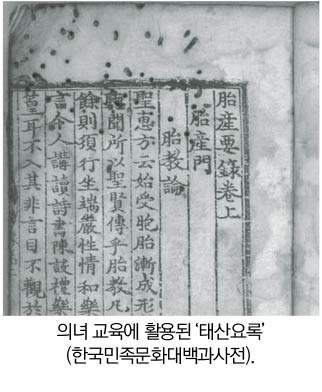 胎産要錄卷上
胎産門
胎教論
聖惠方云始受胞胎漸成形
聞所以聖賢傳乎胎教凡
餘則須行坐端嚴性情和樂
言令人講讀詩書陳說禮樂
耳不入其非言目不觀於
의녀 교육에 활용된 ‘태산요록’
(한국민족문화대백과사전).